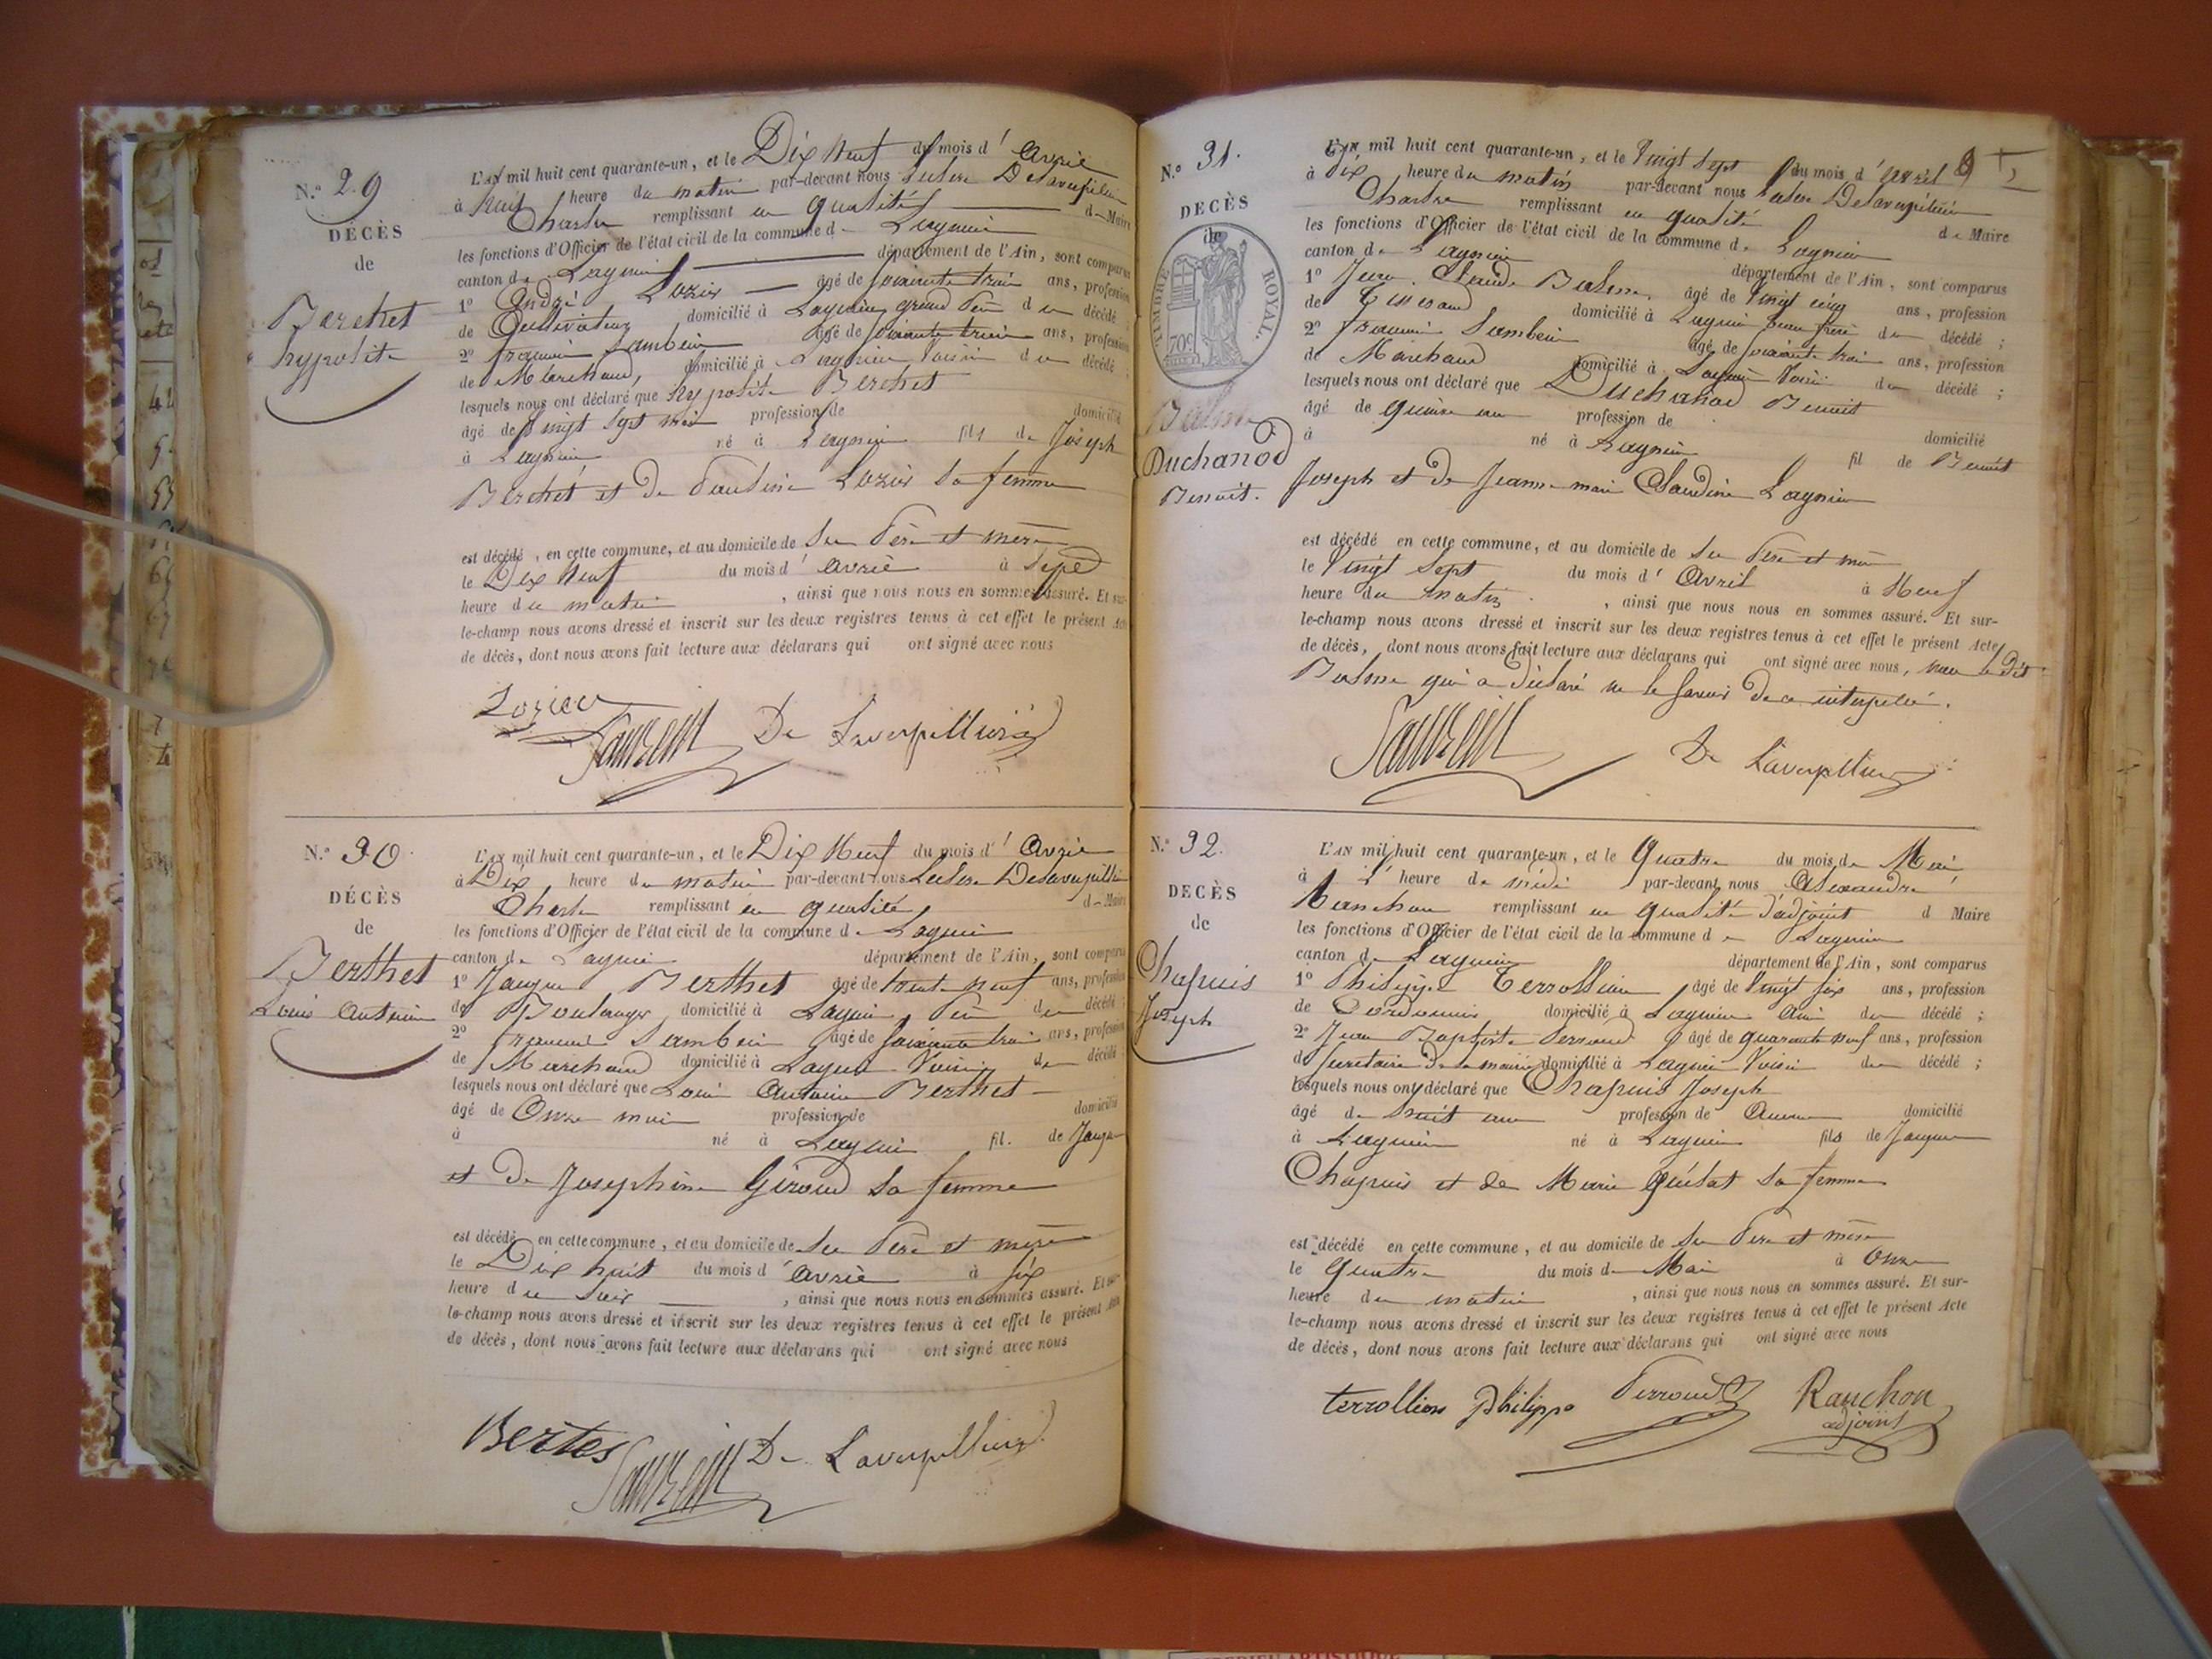 N.º 29
DÉCÈS
de
Berchet
hypolite
L'AN mil huit cent quarante-un, et le Dix Neuf du mois d' Avril
à huit heure du matin par-devant nous
Charles remplissant en qualité de Maire
les fonctions d'Officier de l'état civil de la commune de Lagnieu
canton de Lagnieu département de l'Ain, sont comparus
1º André Lozier âgé de soixante trois ans, profession
de Cultivateur domicilié à Lagnieu grand Père du décédé ;
2º françois âgé de soixante trois ans, profession
de Marchand, domicilié à Lagnieu Voisin du décédé ;
lesquels nous ont déclaré que hypolite Berchet
âgé de vingt sept mois profession de domicilié
à Lagnieu né à Lagnieu fils de Joseph
Berchet et de Lozier sa femme
est décédé, en cette commune, et au domicile de ses Père et mère
le Dix Neuf du mois d' avril à sept
heure du matin , ainsi que nous nous en sommes assuré. Et sur-
le-champ nous avons dressé et inscrit sur les deux registres tenus à cet effet le présent Acte
de décès, dont nous avons fait lecture aux déclarans qui ont signé avec nous
Lozier De Laverpillière
N.º 30
DÉCÈS
de
Berthet
Louis Antoine
L'AN mil huit cent quarante-un, et le Dix Neuf du mois d' Avril
à Dix heure du matin par-devant nous
Charles remplissant en qualité de Maire
les fonctions d'Officier de l'état civil de la commune de Lagnieu
canton de Lagnieu département de l'Ain, sont comparus
1º Jacques Berthet âgé de trente neuf ans, profession
de Boulanger domicilié à Lagnieu Père du décédé ;
2º françois âgé de soixante trois ans, profession
de Marchand domicilié à Lagnieu Voisin du décédé
lesquels nous ont déclaré que Louis Antoine Berthet
âgé de Onze mois profession de domicilié
à né à Lagnieu fil. de Jacques
et de Josephine Giroud sa femme
est décédé en cette commune, et au domicile de ses Père et mère
le Dix huit du mois d' avril à six
heure du soir , ainsi que nous nous en sommes assuré. Et sur-
le-champ nous avons dressé et inscrit sur les deux registres tenus à cet effet le présent Acte
de décès, dont nous avons fait lecture aux déclarans qui ont signé avec nous
Bertes De Laverpillière
N.º 31.
DECÈS
de
TIMBRE ROYAL.
70c
Duchanod
Benoit.
L'AN mil huit cent quarante-un, et le Vingt Sept du mois d' Avril
à Dix heure du matin par-devant nous
Charles remplissant en qualité de Maire
les fonctions d'Officier de l'état civil de la commune de Lagnieu
canton de Lagnieu département de l'Ain, sont comparus
1º Jean Claude Balme âgé de Vingt cinq ans, profession
de Tisserand domicilié à Lagnieu beau frère du décédé ;
2º françois âgé de soixante trois ans, profession
de Marchand domicilié à Lagnieu Voisin du décédé ;
lesquels nous ont déclaré que Duchanod Benoit
âgé de quinze ans profession de domicilié
à né à Lagnieu fil de Benoit
Joseph et de Jeanne marie Claudine Lagnieu
est décédé en cette commune, et au domicile de ses Père et mère
le Vingt Sept du mois d' Avril à Neuf
heure du matin , ainsi que nous nous en sommes assuré. Et sur-
le-champ nous avons dressé et inscrit sur les deux registres tenus à cet effet le présent Acte
de décès, dont nous avons fait lecture aux déclarans qui ont signé avec nous, non le dit
Balme qui a déclaré ne le savoir de ce interpellé.
De Laverpillière
N.º 32.
DECÈS
de
Chapuis
Joseph
L'AN mil huit cent quarante-un, et le Quatre du mois de Mai
à 1' heure de midi par-devant nous Alexandre
Ranchon remplissant en qualité d'adjoint d Maire
les fonctions d'Officier de l'état civil de la commune de Lagnieu
canton de Lagnieu département de l'Ain, sont comparus
1º Philippe Terrollion âgé de Vingt six ans, profession
de Cordonnier domicilié à Lagnieu Ami du décédé ;
2º Jean Baptiste Perroud âgé de quarante neuf ans, profession
de Secretaire de la mairie domicilié à Lagnieu Voisin du décédé ;
lesquels nous ont déclaré que Chapuis Joseph
âgé de huit ans profession de Aucune domicilié
à Lagnieu né à Lagnieu fils de Jacques
Chapuis et de Marie sa femme
est décédé en cette commune, et au domicile de ses Père et mère
le Quatre du mois de Mai à Onze
heure du matin , ainsi que nous nous en sommes assuré. Et sur-
le-champ nous avons dressé et inscrit sur les deux registres tenus à cet effet le présent Acte
de décès, dont nous avons fait lecture aux déclarans qui ont signé avec nous
terrollion philippe Perroud Ranchon
adjoint